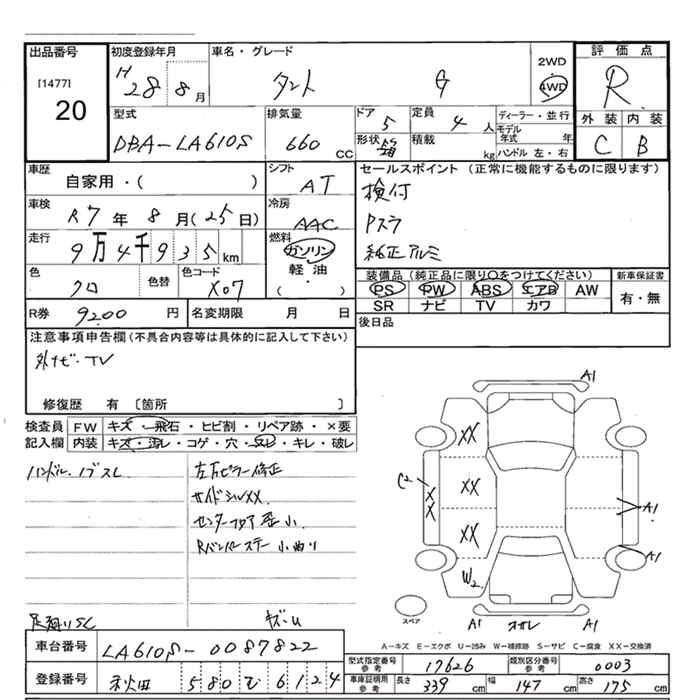 出品番号
[1477]
20
初度登録年月
H28 8月
車名・グレード
タント G
2WD
4WD
評価点
R
外装 内装
C B
型式
DBA-LA610S
排気量
660 CC
ドア
5
形状
箱
定員
4 人
積載
kg
ディーラー・並行
モデル年式 年
ハンドル 左・右
車歴
自家用・( )
シフト
AT
車検
R7年8月(25日)
冷房
AAC
走行
9万4千935km
燃料
ガソリン
軽油
( )
色
クロ
色替
色コード
X07
R券 9200円
名変期限 月 日
セールスポイント(正常に機能するものに限ります)
検付
Pスラ
純正アルミ
装備品(純正品に限り〇をつけてください)
PS PW ABS エアB AW
SR ナビ TV カワ
新車保証書
有・無
後日品
注意事項申告欄(不具合内容等は具体的に記入して下さい)
外ナビ・TV
修復歴 有 〔箇所 〕
検査員記入欄
FW キズ・飛石・ヒビ割・リペア跡・×要
内装 キズ・汚レ・コゲ・穴・スレ・キレ・破レ
ハンドル・ノブスレ
左Bピラー修正
サイドシルXX
センターフロア歪小
Rバンパーステー小曲り
キズ・U
A1
XX
C2
XX
XX
XX
A1
A1
W2
スペア
A1
A1
A-キズ E-エクボ U-凹み W-補修跡 S-サビ C-腐食 XX-交換済
車台番号
LA610S-0087822
登録番号
秋田 580 む 6124
型式指定番号参考
17626
類別区分番号参考
0003
車庫証明用参考
長さ 339cm
幅 147cm
高さ 175cm